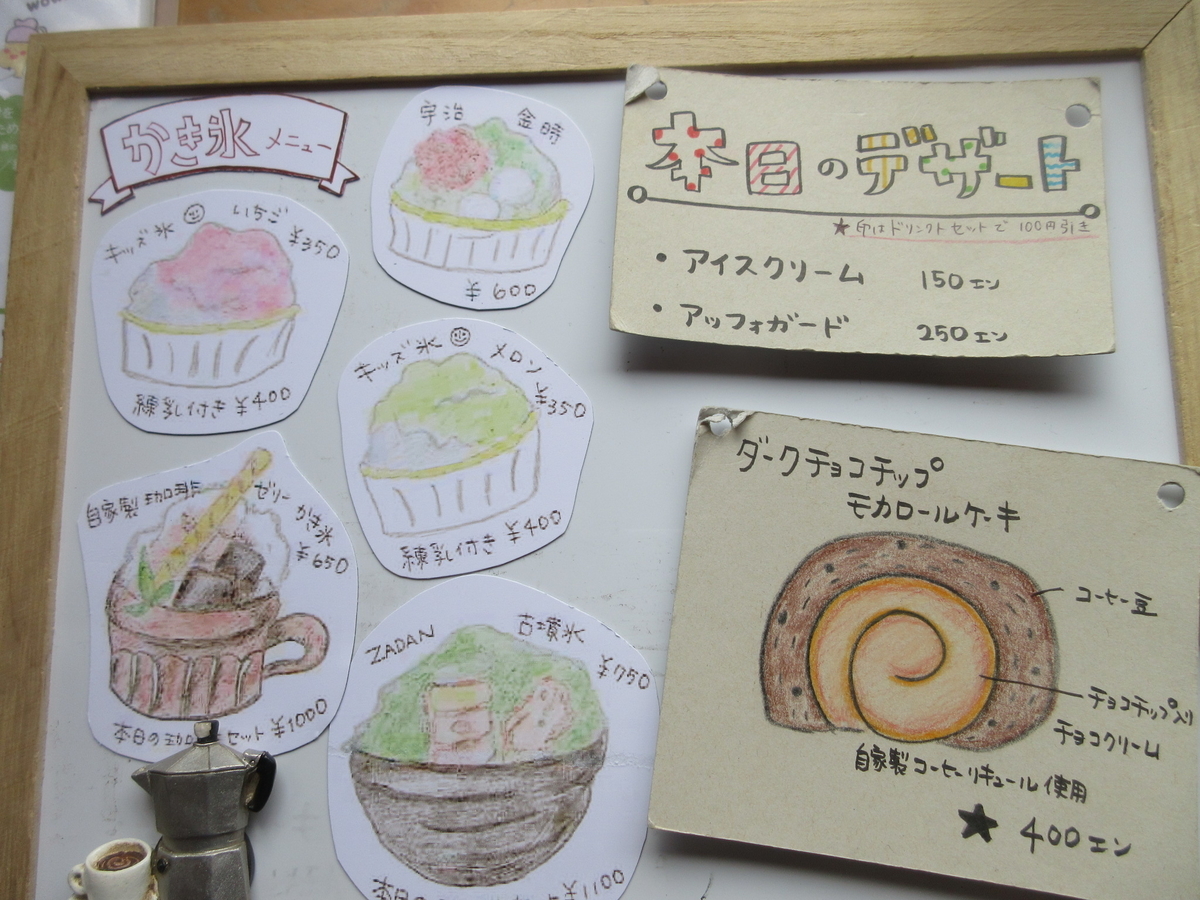 かき氷 メニュー
宇治 金時
¥600
キッズ氷 いちご
¥350
練乳付き ¥400
キッズ氷 メロン
¥350
練乳付き ¥400
自家製 珈琲 ゼリー
かき氷
¥650
本日の珈 セット ¥1000
ZADAN 古墳氷
¥750
本日の セット ¥1100
本日のデザート
★印はドリンクセットで100円引き
・アイスクリーム 150エン
・アッフォガード 250エン
ダークチョコチップ
モカロールケーキ
コーヒー豆
チョコチップ入り
チョコクリーム
自家製コーヒーリキュール使用
★ 400エン